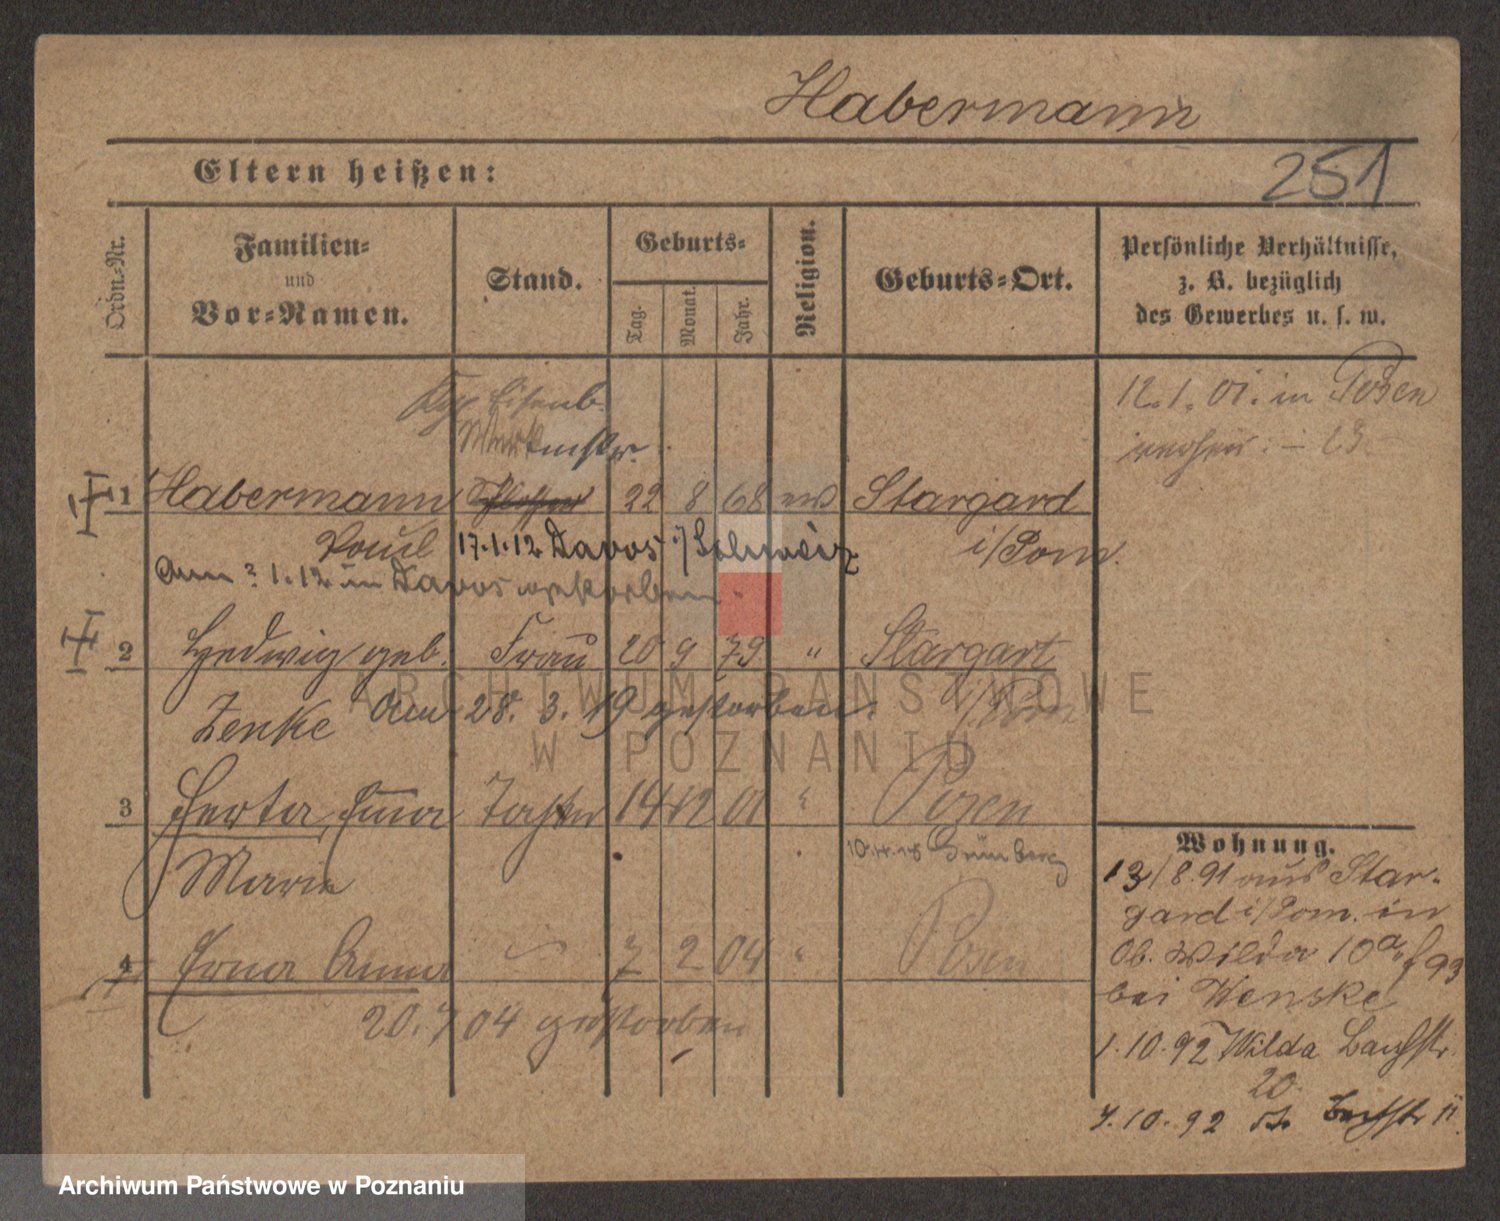 Habermann
251
Eltern heißen:
Ordn.=Nr.
Familien=
und
Vor=Namen.
Stand.
Geburts=
Tag.
Monat.
Jahr.
Religion.
Geburts=Ort.
Persönliche Verhältnisse,
z. B. bezüglich
des Gewerbes u. s. w.
Eisenb.
12. 1. 01. in Posen
1 Habermann 22 8 68 ev Stargard
Paul 17.1.12 Davos i/Schweiz i/Pom.
Am ? 1. 12 in Davos gestorben.
2 Hedwig geb. Frau 20 9 79 " Stargart
Zenke Am 28. 3. 19 gestorben. i/Pom
3 Herta, Tochter 14 12 01 " Posen
Marie Grünberg
4 Erna Anna 7 2 04 " Posen
20. 7 04 gestorben
Wohnung.
13/8. 91 aus Star-
gard i/Pom. in
Ob. Wilda 10a
bei Wenske
1. 10. 92 Wilda Bachstr.
20.
7. 10. 92
ARCHIWUM PAŃSTWOWE
W POZNANIU
Archiwum Państwowe w Poznaniu